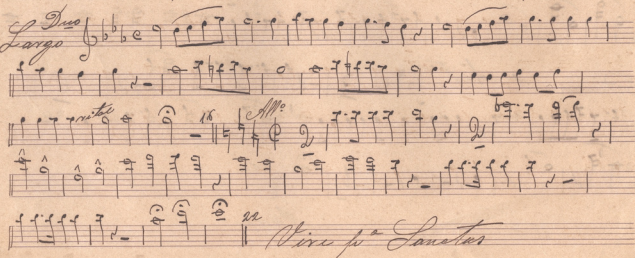 Duo
Largo
rital
16 All.º
2 2
22 Vire p.ª Sanctus